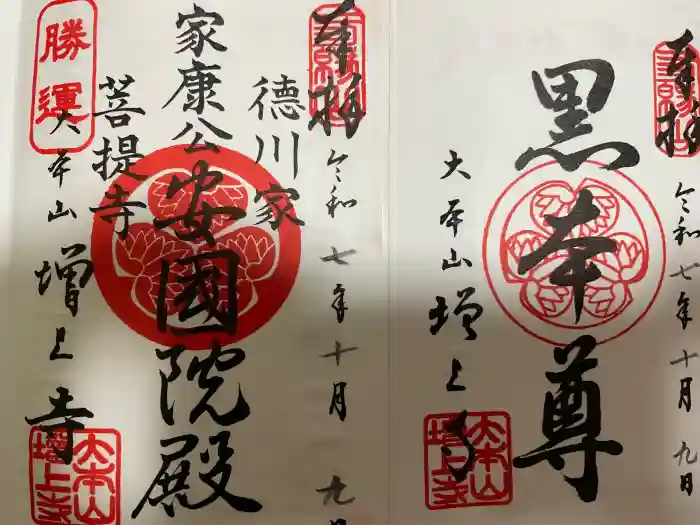 奉拝
三縁山
令和七年十月九日
黒本尊
大本山増上寺
大本山
増上寺
奉拝
三縁山
令和七年十月九日
徳川家
家康公安國院殿
菩提寺
勝運
大本山増上寺
大本山
増上寺